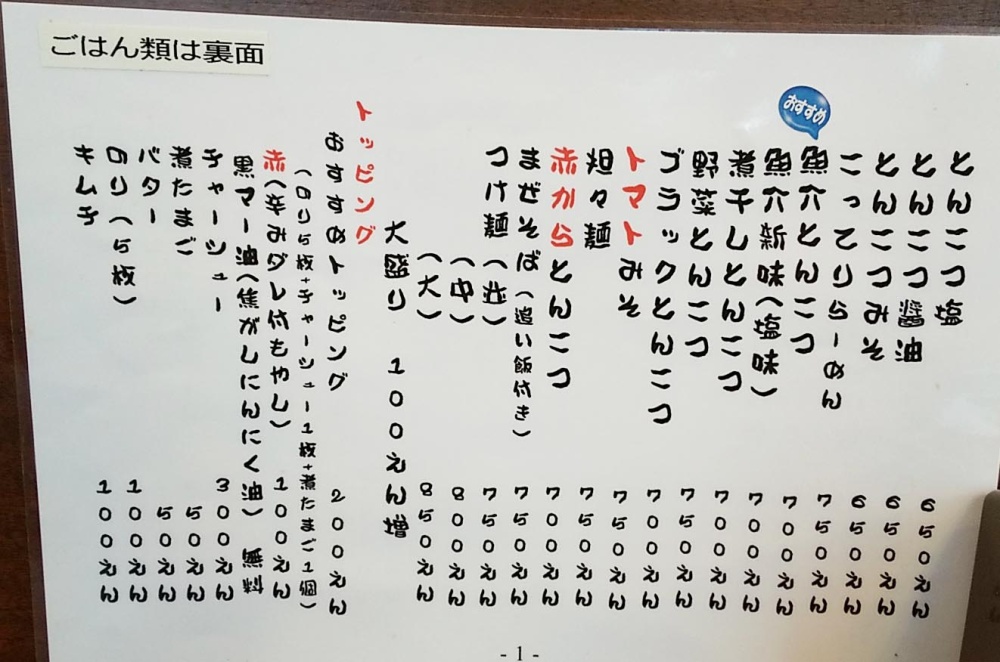 ごはん類は裏面
とんこつ塩 650えん
とんこつ醤油 650えん
とんこつみそ 650えん
こってりらーめん 750えん
おすすめ
魚介とんこつ 700えん
魚介新味(塩味) 700えん
煮干しとんこつ 700えん
野菜とんこつ 750えん
ブラックとんこつ 700えん
トマトみそ 750えん
坦々麺 700えん
赤からとんこつ 700えん
まぜそば(追い飯付き) 750えん
つけ麺(並) 750えん
(中) 800えん
(大) 850えん
大盛り 100えん増
トッピング
おすすめトッピング 200えん
(のり5枚+チャーシュー1枚+煮たまご1個)
赤(辛みダレ付もやし) 100えん
黒マー油(焦がしにんにく油) 無料
チャーシュー 300えん
煮たまご 50えん
バター 50えん
のり(5枚) 100えん
キムチ 100えん
- 1 -